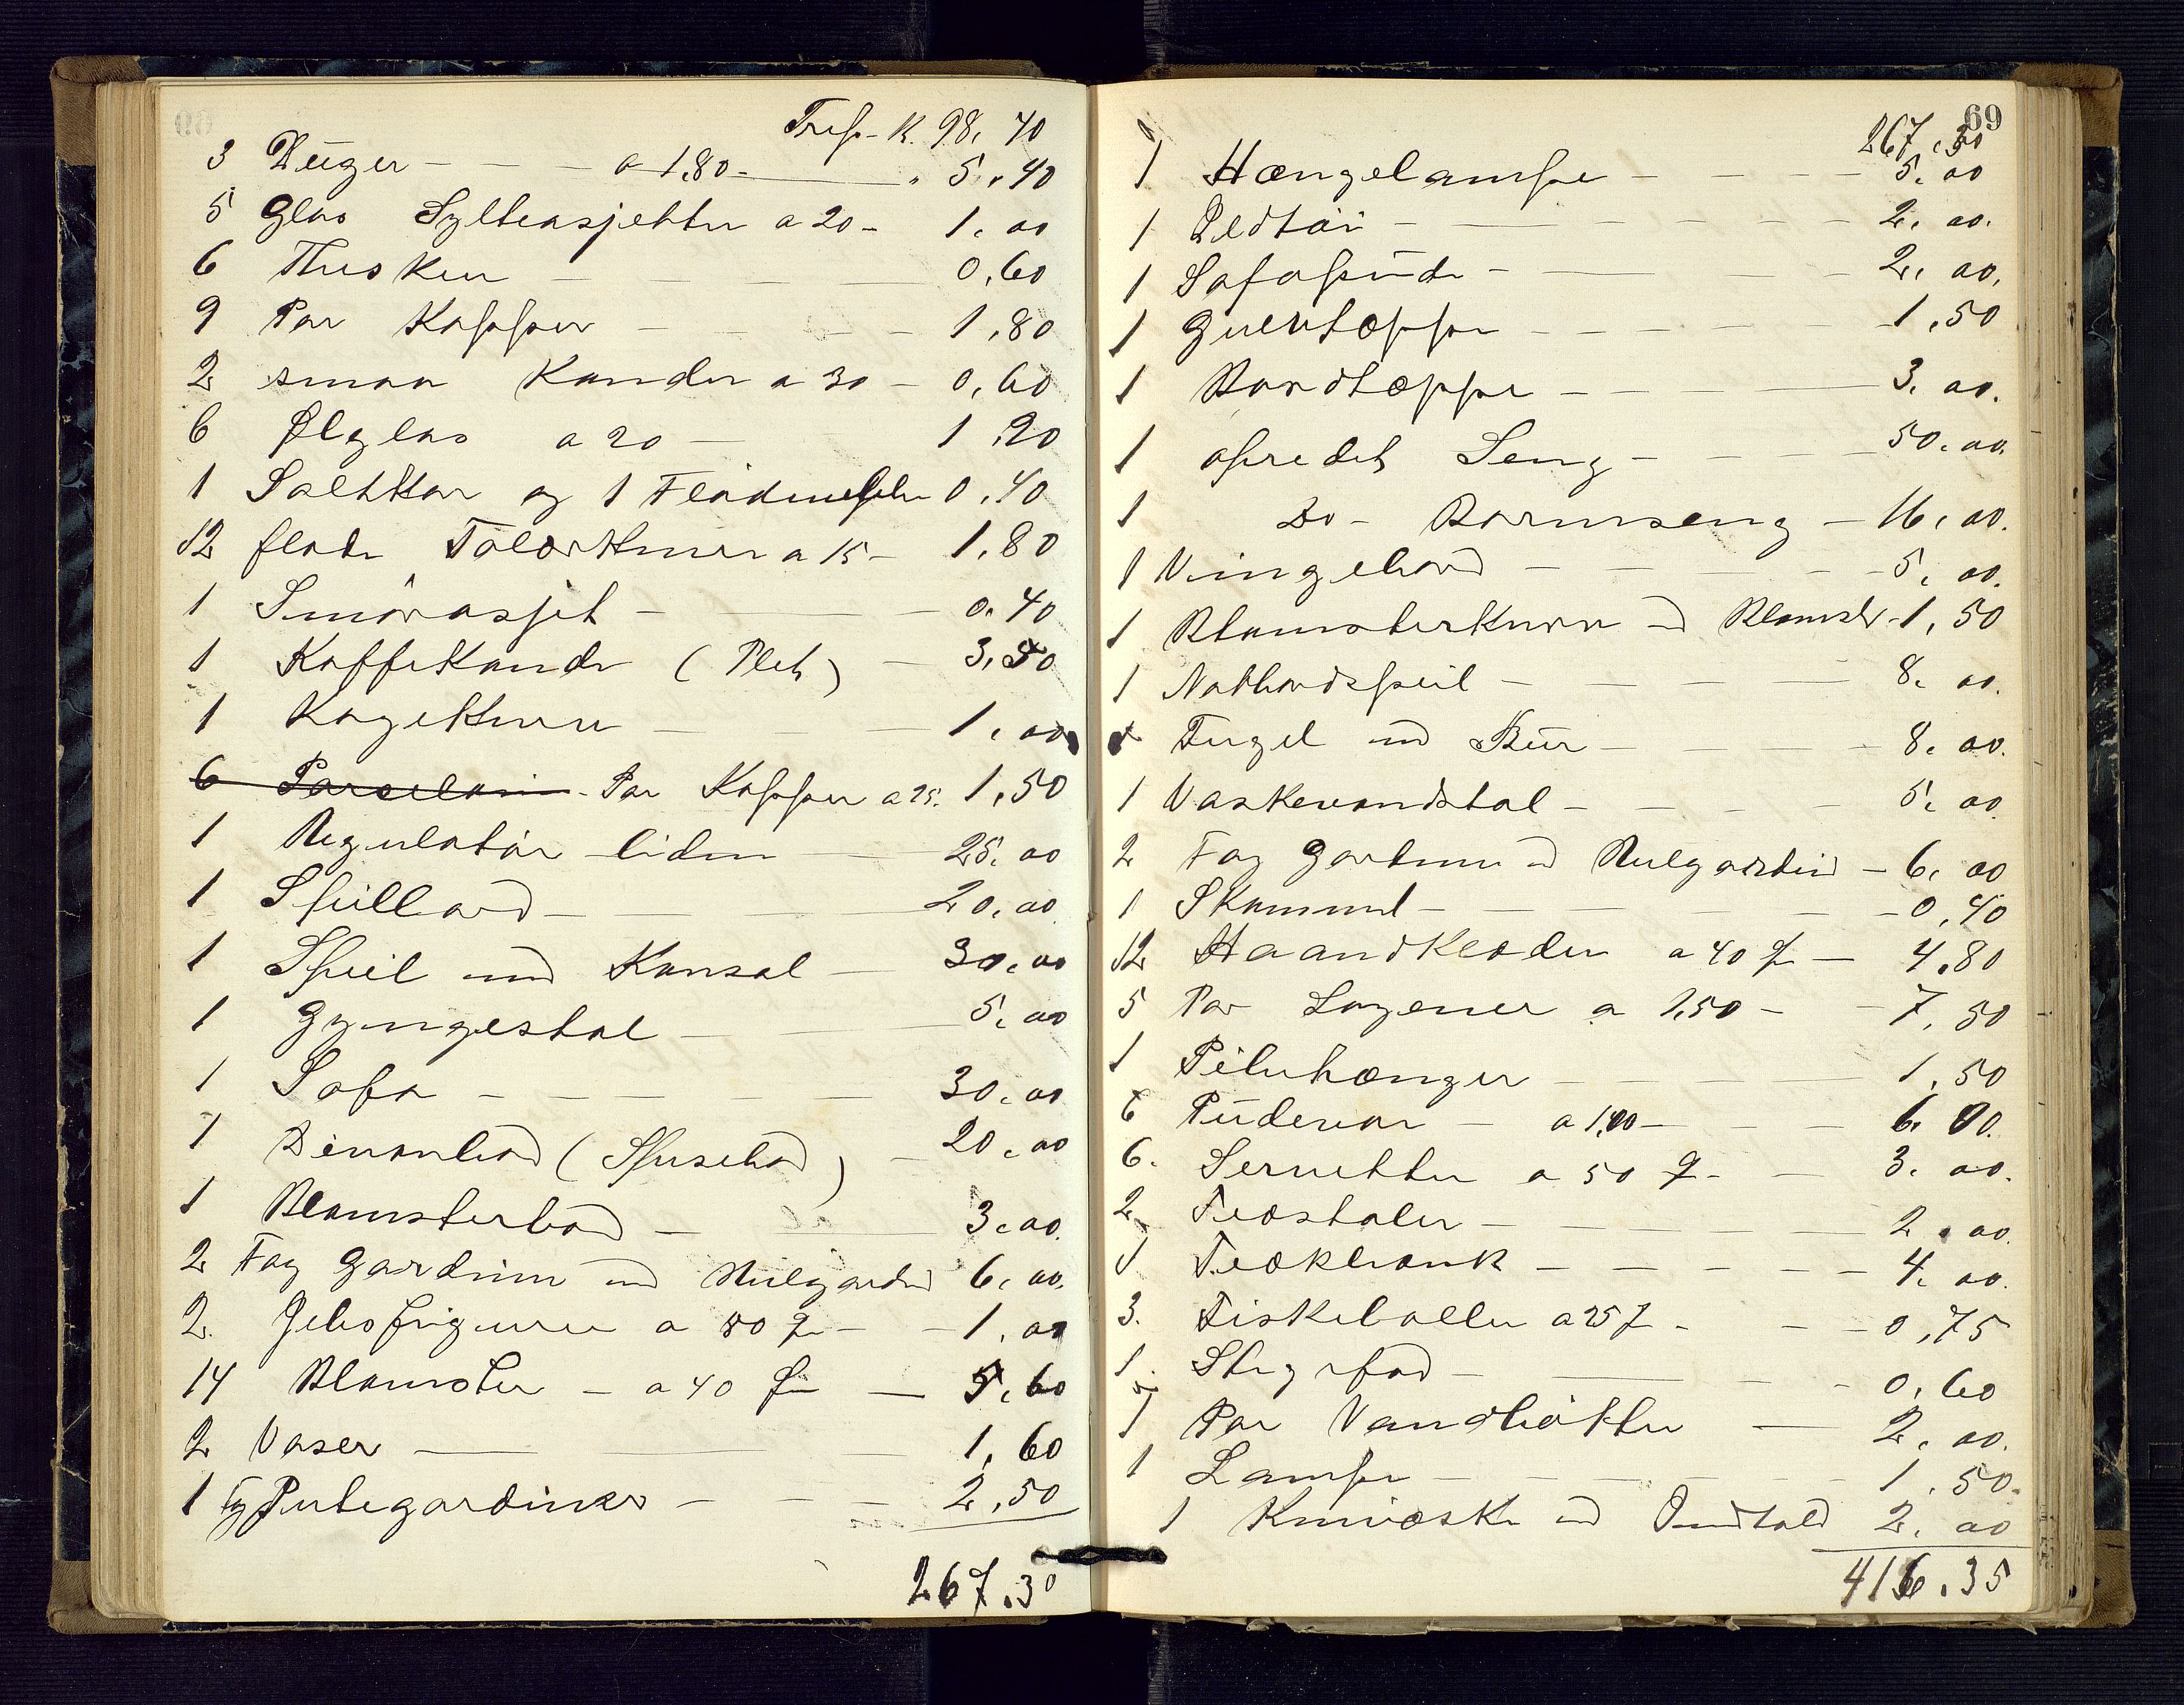 Trsp. K. 98,40
3 Duger a 1,80 - " 5,40
5 Glas Sylteasjetter a 20 - 1,00
6 Theskeer 0,60
9 Par Kopper 1,80
2 smaa Kander a 30 - 0,60
6 Ølglas a 20 - 1,20
1 Saltkar og 1 Flödemugge 0,40
12 flade Talærkener a 15 - 1,80
1 Smörasjet - 0,40
1 Kaffekande (Plet) - 3,50
1 Kagekurv 1,00
6 Porcelain Par Kopper a 25. 1,50
1 Regulatör liden 25,00
1 Spillbord 20,00
1 Speil med Konsol 30,00
1 Gyngestol 5,00
1 Sofa 30,00
1 Divanbord (Spisebord) - 20,00
1 Blomsterbord 3,00
2 Fag Gardiner med Rulgardin 6,00
2 Gibsfigurer a 50 Ø - 1,00
14 Blomster - a 40 Ø - 5,60
2 Vaser 1,60
1 Fg Portegardiner 2,50
267.30
69
267,30
1 Hængelampe 5,00
1 Ildtöi 2,00
1 Sofapude 2,00
1 Gulvtæppe 1,50
1 Bordtæppe 3,00
1 opredet Seng 50,00
1 Do - Barneseng - 16,00
1 Vingebord 5,00
1 Blomsterkurv m Blomstr 1,50
1 Natbordspeil 8,00
1 Fugel med Buur 8,00
1 Vaskevandstol 5,00
2 Fag Gardiner m Rulgardin - 6,00
1 Skammel - 0,40
12 Haandklæder a 40 Ø - 4,80
5 Par Lagener a 1,50 - 7,50
1 Pibehænger 1,50
6 Pudevar a 1,00 - 6.00
6. Servietter a 50 Ø - 3,00
2 Træstoler 2,00
1 Trækbænk 4,00
3. Fiskeboller a 25 Ø - 0,75
1. Stegefad 0,60
1 Par Vandbötter 2,00
1 Lampe 1,50
1 Knivæske m Indhold 2,00
416.35